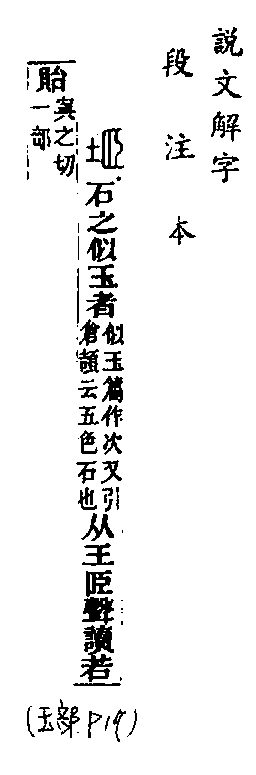 説文解字
段注本
石之似玉者
似玉篇作次又引
倉頡云五色石也
从王𦣞聲讀若
貽
與之切
一部
(玉部 P19)